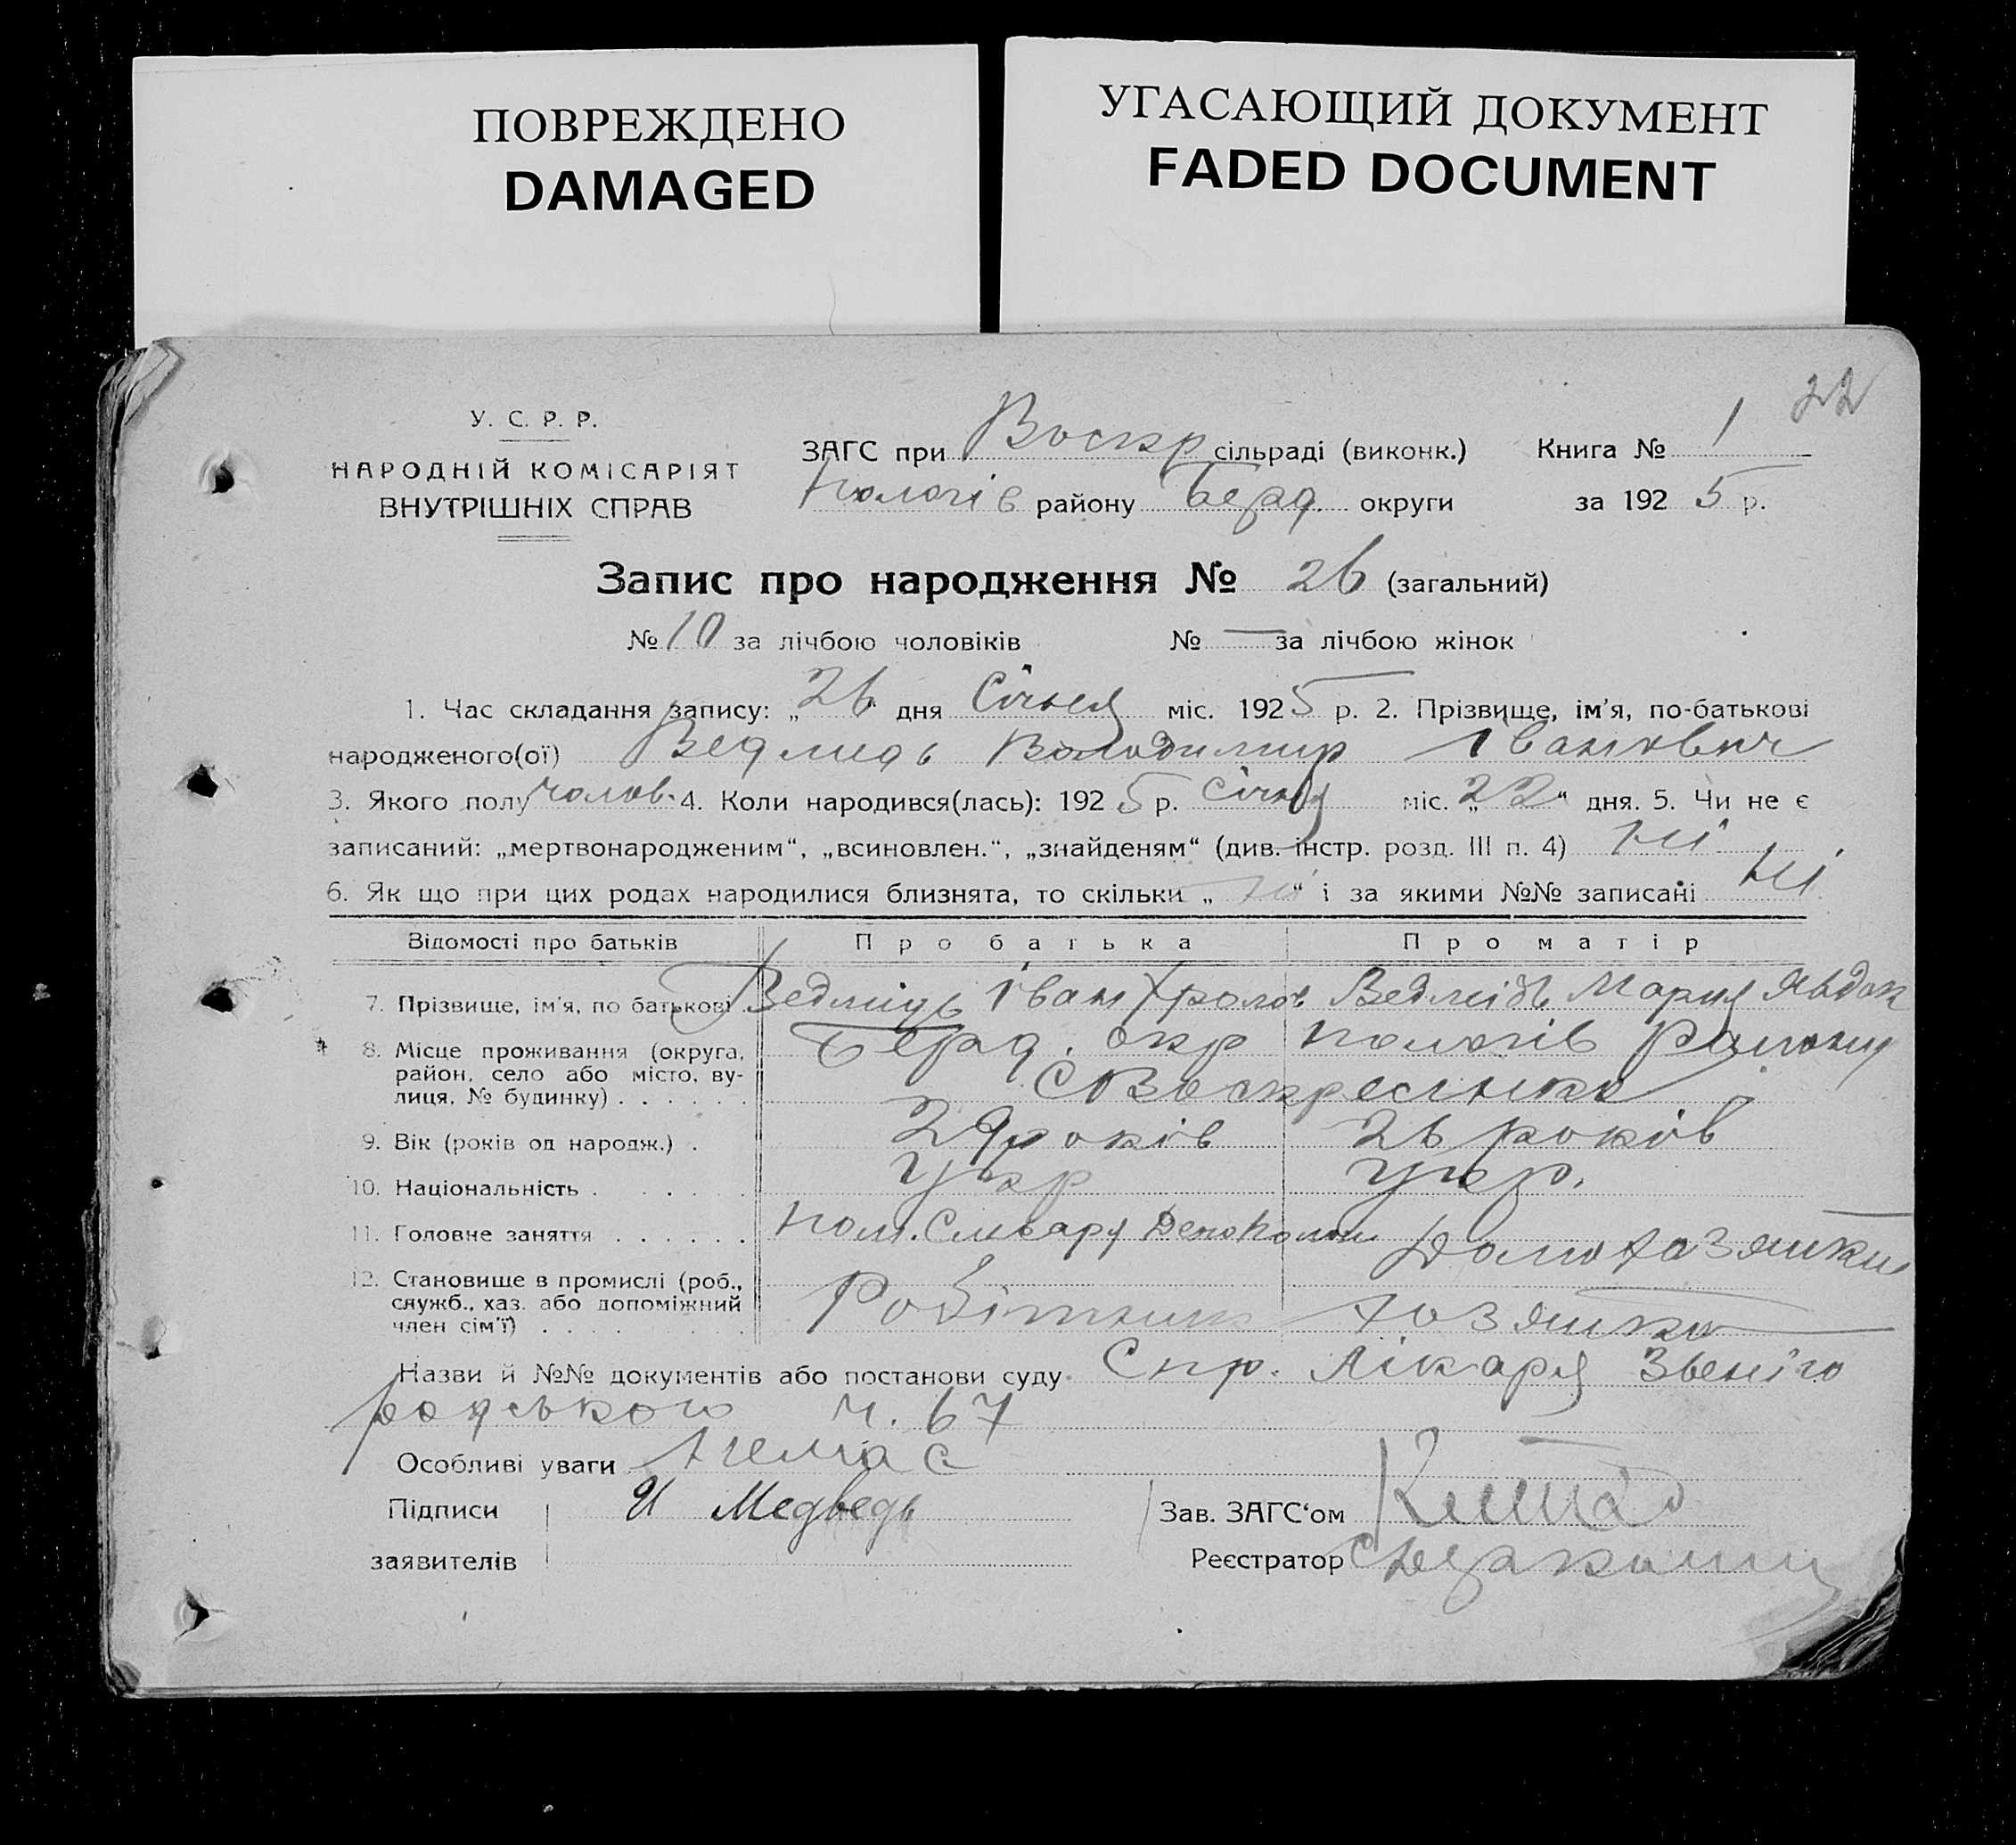 ПОВРЕЖДЕНО
DAMAGED
УГАСАЮЩИЙ ДОКУМЕНТ
FADED DOCUMENT
22
У. С. Р. Р.
НАРОДНІЙ КОМІСАРІЯТ
ВНУТРІШНІХ СПРАВ
ЗАГС при Воскр сільраді (виконк.) Книга № 1
Пологів району Берд. округи за 1925 р.
Запис про народження № 26 (загальний)
№ 10 за лічбою чоловіків № — за лічбою жінок
1. Час складання запису: „26" дня Січня міс. 1925 р. 2. Прізвище, ім'я, по-батькові
народженого(ої) Ведмидь Володимир Іванович
3. Якого полу чолов. 4. Коли народився(лась): 1925 р. Січня міс. „22" дня. 5. Чи не є
записаний: „мертвонародженим", „всиновлен.", „знайденям" (див. інстр. розд. III п. 4) ні
6. Як що при цих родах народилися близнята, то скільки „ні" і за якими №№ записані ні
Відомості про батьків Про батька Про матір
7. Прізвище, ім'я, по батькові Ведмідь Іван Хролов Ведмідь Мария Явдок
8. Місце проживання (округа, Берд. окр Пологів Району
район, село або місто, ву- с Воскресенка
лиця, № будинку) . . . . . .
9. Вік (років од народж.) . 29 років 26 років
10. Національність . . . . . Укр Укр.
11. Головне заняття . . . . . . Пом. Слюсаря Депо Пологи Домохазяйка
12. Становище в промислі (роб., Робітник хозяйка
служб., хаз. або допоміжний
член сім'ї) . . . .
Назви й №№ документів або постанови суду Спр. Лікаря Звеніго
родського ч. 67
Особливі уваги Немає
Підписи И Медведь Зав. ЗАГС'ом
заявителів Реєстратор